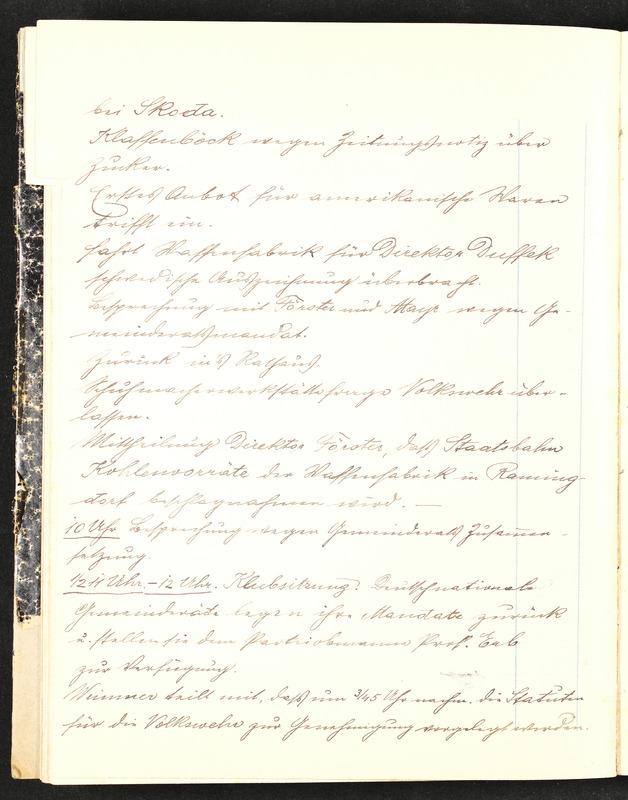 bei Skoda.
Klaffenböck wegen Zeitungsnotiz über
Zucker.
Erstes Anbot für amerikanische Waren
trifft ein.
Fahrt Waffenfabrik für Direktor Duffek
schwedische Auszeichnung überbracht.
Besprechung mit Förster und Mayr wegen Ge-
meinderatsmandat.
Zurück in's Rathaus.
Schuhmacherwerkstätte Volkswehr über-
lassen.
Mittheilung Direktor Förster, daß Staatsbahn
Kohlenvorräte der Waffenfabrik in Raming-
dorf beschlagnahmen wird. —
10 Uhr Besprechung wegen Gemeinderats Zusammen-
setzung.
1/2 11 Uhr - 12 Uhr. Klubsitzung. Deutschnationale
Gemeinderäte legen ihre Mandate zurück
u. stellen sie dem Parteiobmanne Prof. Erb
zur Verfügung.
Wimmer teilt mit, daß um 3/4 5 Uhr nachm. die Statuten
für die Volkswehr zur Genehmigung vorgelegt werden.